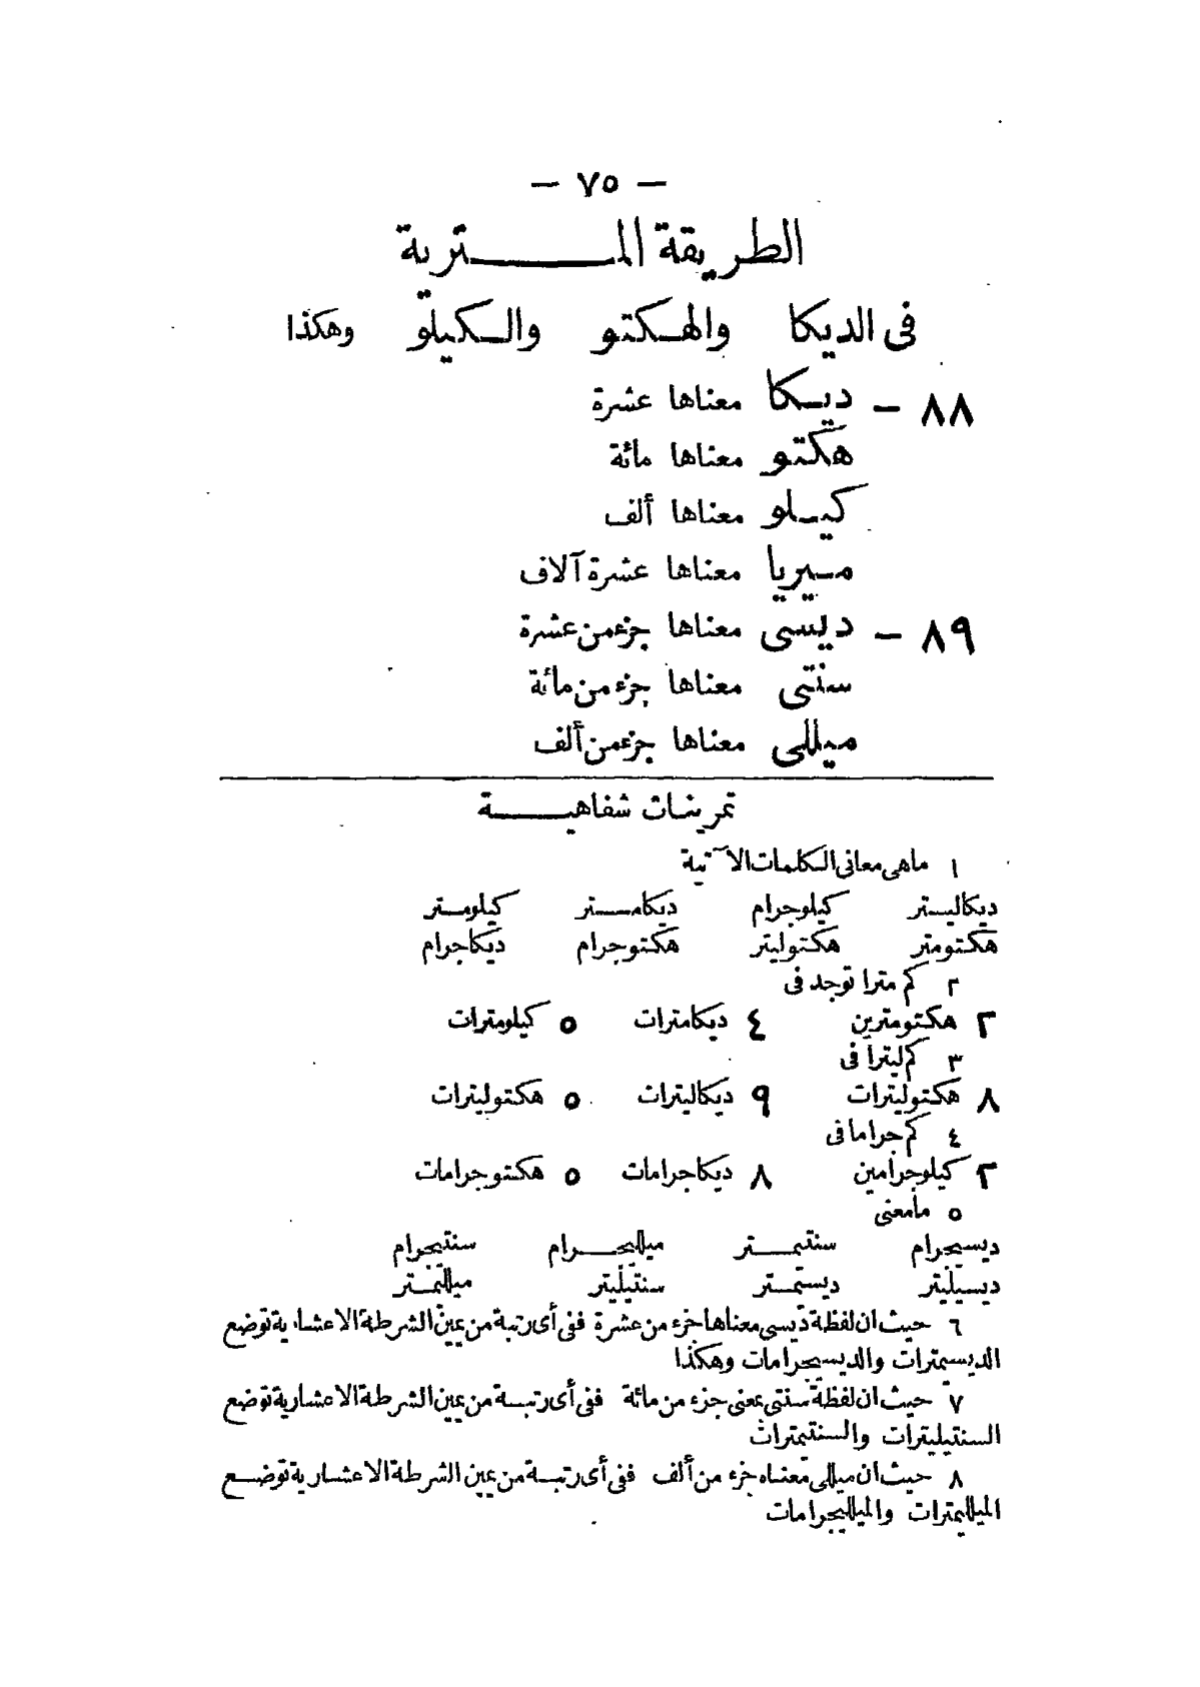 — ٧٥ —
الطريقة المترية
فى الديكا والهكتو والكيلو وهكذا
٨٨ — ديكا معناها عشرة
هكتو معناها مائة
كيلو معناها ألف
ميريا معناها عشرة آلاف
٨٩ — ديسى معناها جزء من عشرة
سنتى معناها جزء من مائة
ميللى معناها جزء من ألف
تمرينات شفاهية
١ ماهى معانى الكلمات الآتية
ديكاليتر كيلوجرام ديكامتر كيلومتر
هكتومتر هكتوليتر هكتوجرام ديكاجرام
٢ كم مترا توجد فى
٢ هكتومترين ٤ ديكامترات ٥ كيلومترات
٣ كم ليترا فى
٨ هكتوليترات ٩ ديكاليترات ٥ هكتوليترات
٤ كم جراما فى
٢ كيلوجرامين ٨ ديكاجرامات ٥ هكتوجرامات
٥ مامعنى
ديسيجرام سنتيمتر ميلليجرام سنتيجرام
ديسيليتر ديسيمتر سنتيليتر ميلليمتر
٦ حيث ان لفظة ديسى معناها جزء من عشرة ففى أى رتبة من يمين الشرطة الاعشارية توضع
الديسيمترات والديسيجرامات وهكذا
٧ حيث ان لفظة سنتى بمعنى جزء من مائة ففى أى رتبة من يمين الشرطة الاعشارية توضع
السنتيليترات والسنتيمترات
٨ حيث ان ميللى معناه جزء من ألف ففى أى رتبة من يمين الشرطة الاعشارية توضع
الميلليمترات والميلليجرامات